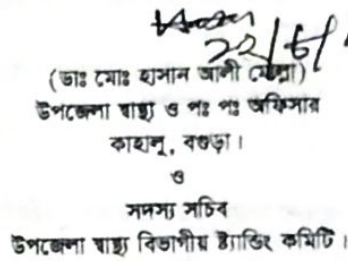 (ডাঃ মোঃ হাসান আলী মোল্লা)
উপজেলা স্বাস্থ্য ও পঃ পঃ অফিসার
কাহালু, বগুড়া।
ও
সদস্য সচিব
উপজেলা স্বাস্থ্য বিভাগীয় ষ্ট্যান্ডিং কমিটি।